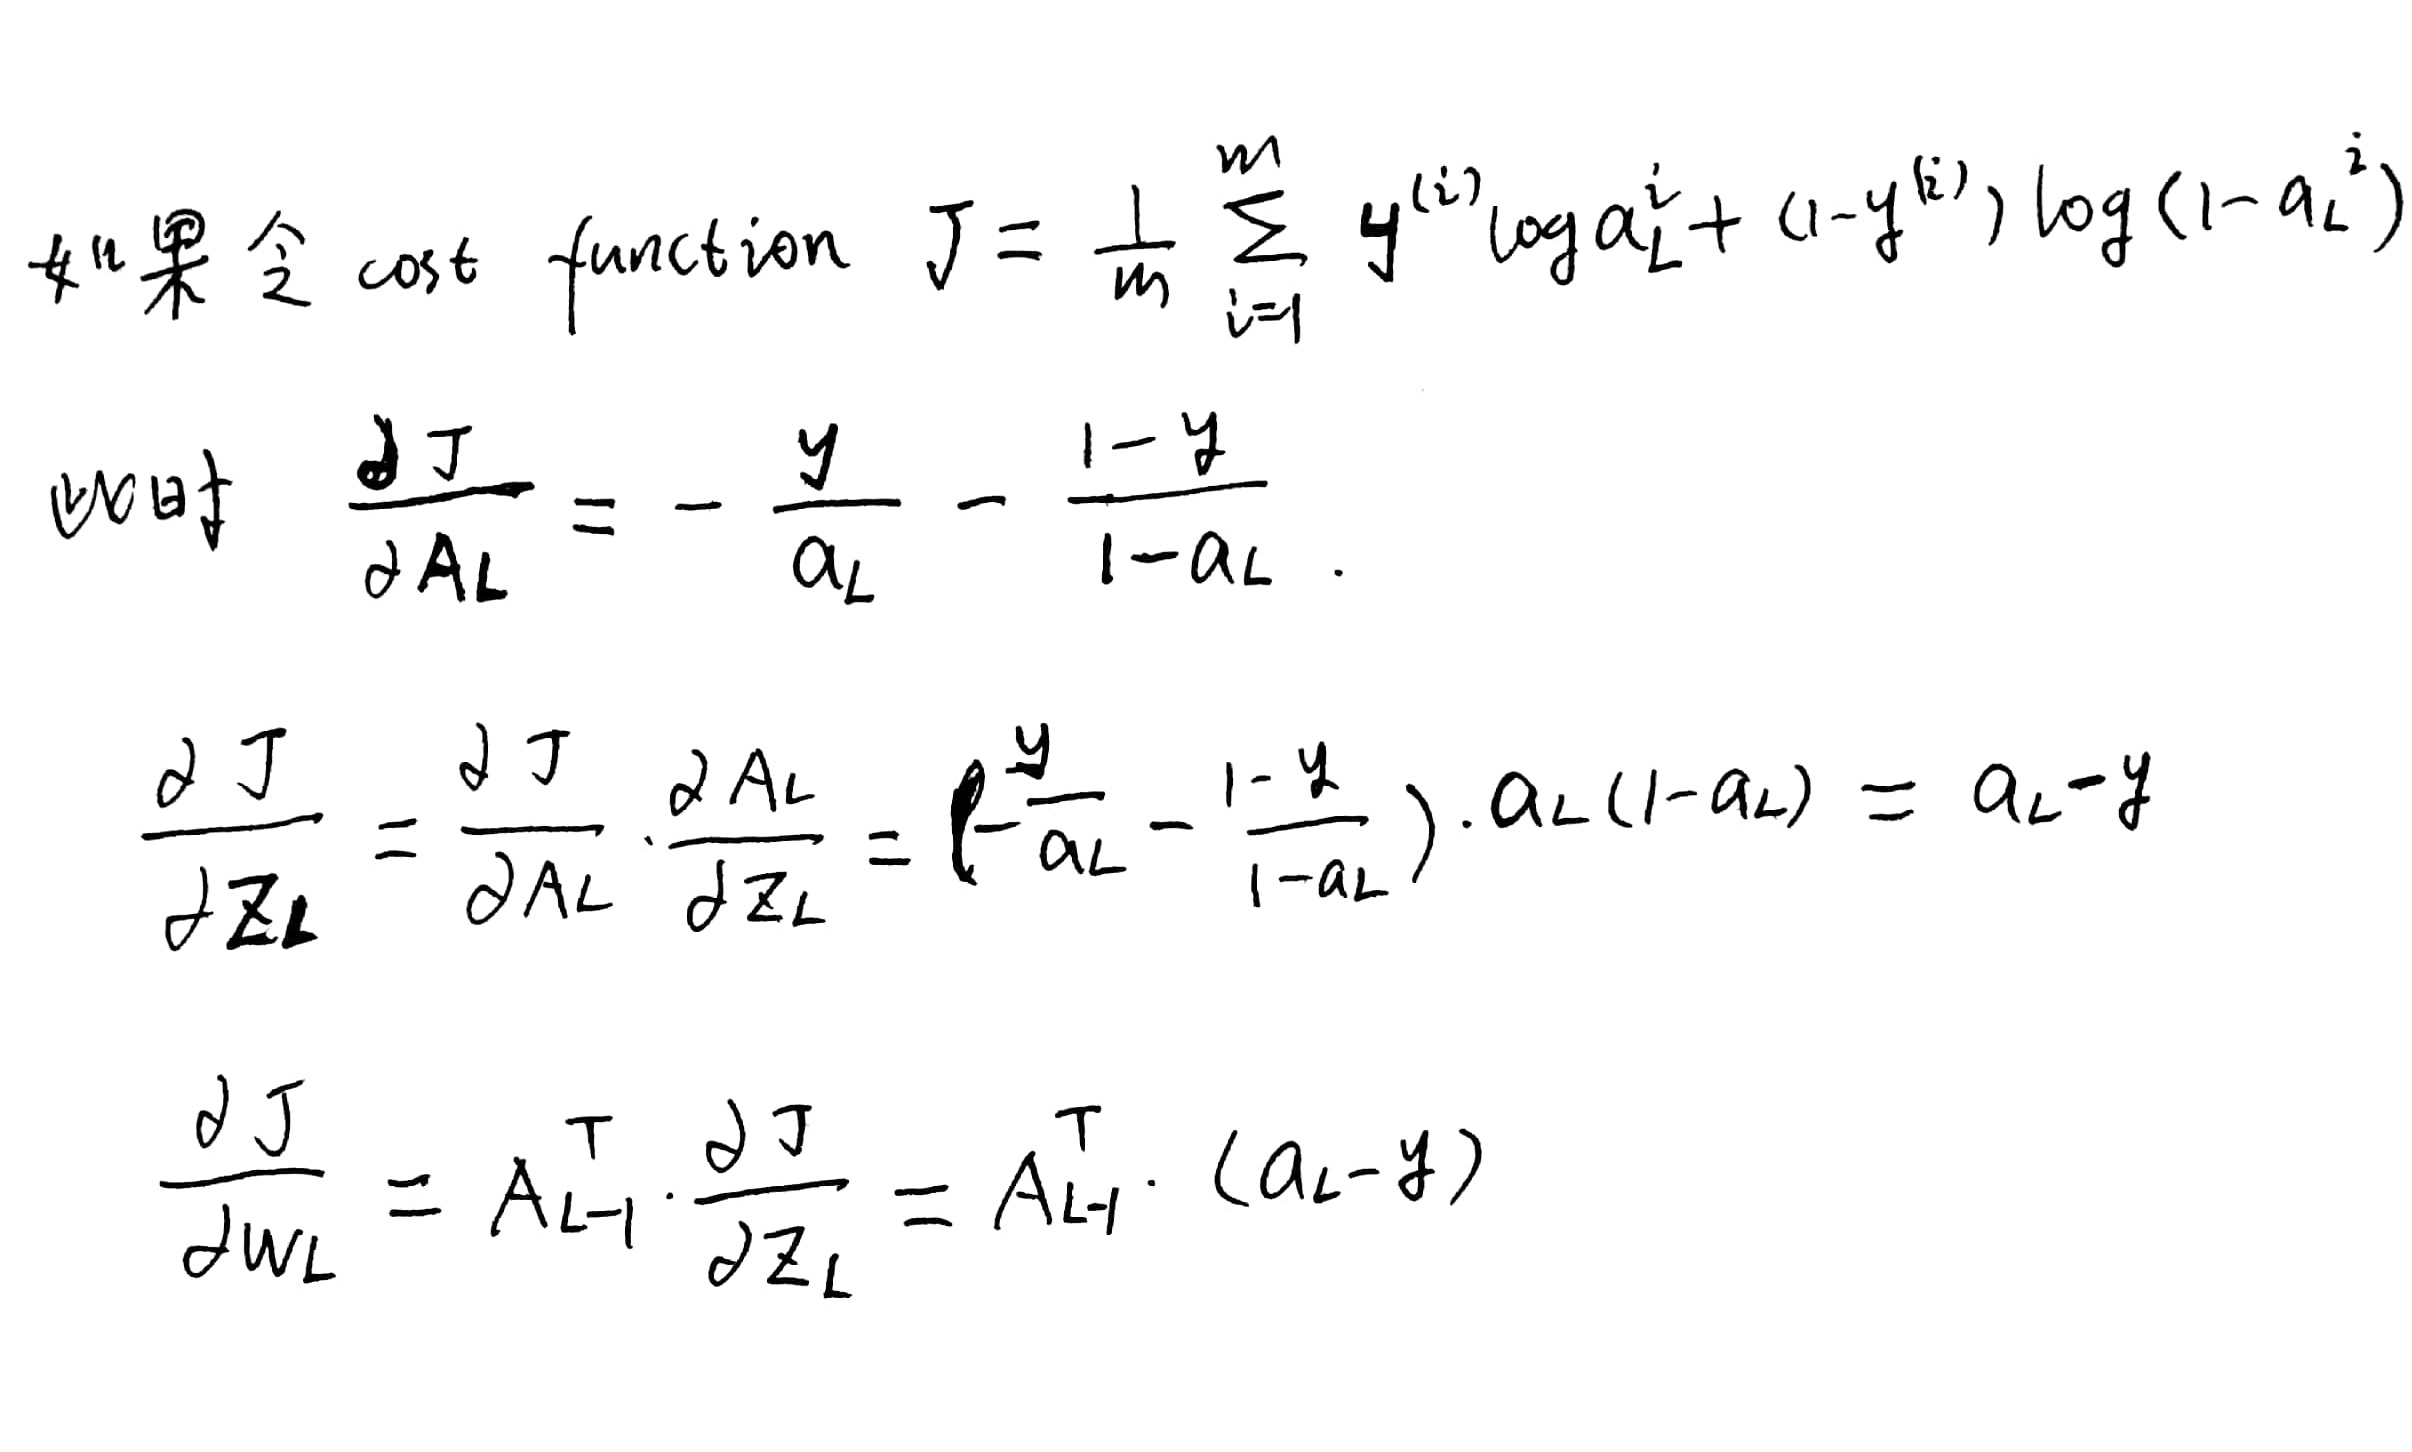 如果令 cost function J = 1/m Σ_{i=1}^{m} y^{(i)} log a_L^i + (1-y^{(i)}) log(1-a_L^i)
此时 ∂J/∂A_L = - y/a_L - (1-y)/(1-a_L) .
∂J/∂Z_L = ∂J/∂A_L · ∂A_L/∂Z_L = (- y/a_L - (1-y)/(1-a_L)) · a_L(1-a_L) = a_L-y
∂J/∂W_L = A_{L-1}^T · ∂J/∂Z_L = A_{L-1}^T · (a_L-y)